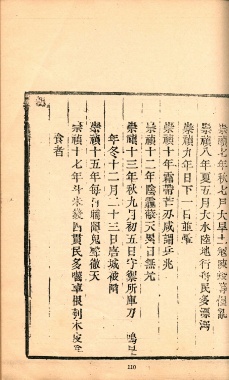 崇禎七年秋七月大旱
崇禎八年夏五月大水陸地行舟民多漂溺
崇禎九年日下一日並
崇禎十年霜帶芒刃咸謂兵兆
崇禎十二年陰霾蔽天累日無光
崇禎十三年秋九月初五日守禦所庫刀鳴
年冬十二月二十三日唐城被
崇禎十五年每
鬼聲徹天
崇禎十七年斗米
民多
草根剝木皮
食者
110